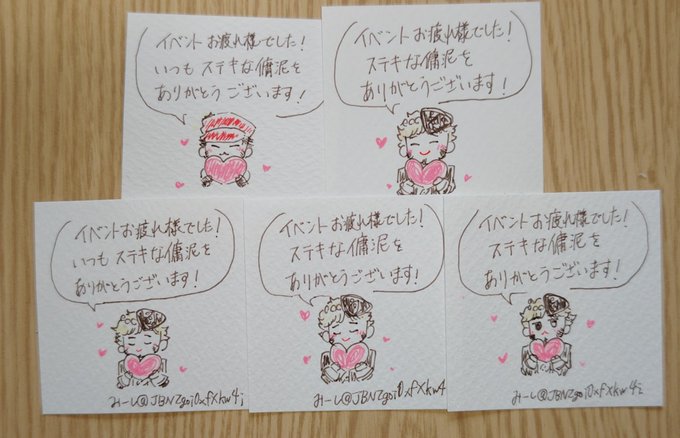 イベントお疲れ様でした！
いつもステキな傭泥を
ありがとうございます！
イベントお疲れ様でした！
ステキな傭泥を
ありがとうございます！
イベントお疲れ様でした！
いつもステキな傭泥を
ありがとうございます！
みーし@JBNZgoi0xfXkw4i
イベントお疲れ様でした！
ステキな傭泥を
ありがとうございます！
みーし@JBNZgoi0xfXkw4
イベントお疲れ様でした！
ステキな傭泥を
ありがとうございます！
みーし@JBNZgoi0xfXkw4i